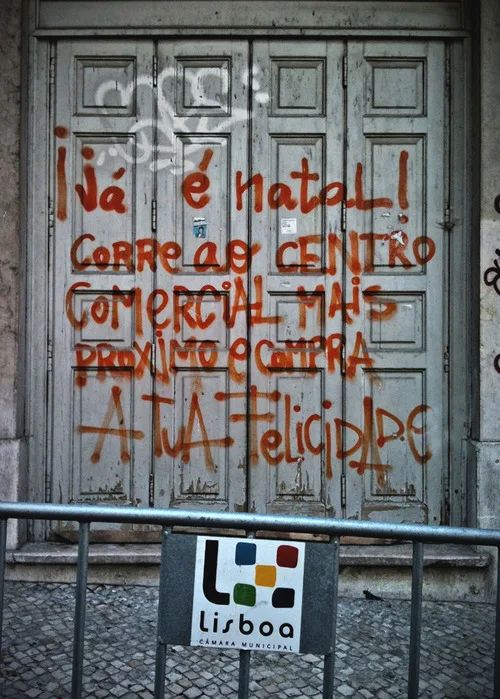 ¡já é natal!
CORRE AO CENTRO
COMERCIAL MAIS
PROXIMO e COMPRA
A TUA FELICIDADE
Lisboa
CÂMARA MUNICIPAL